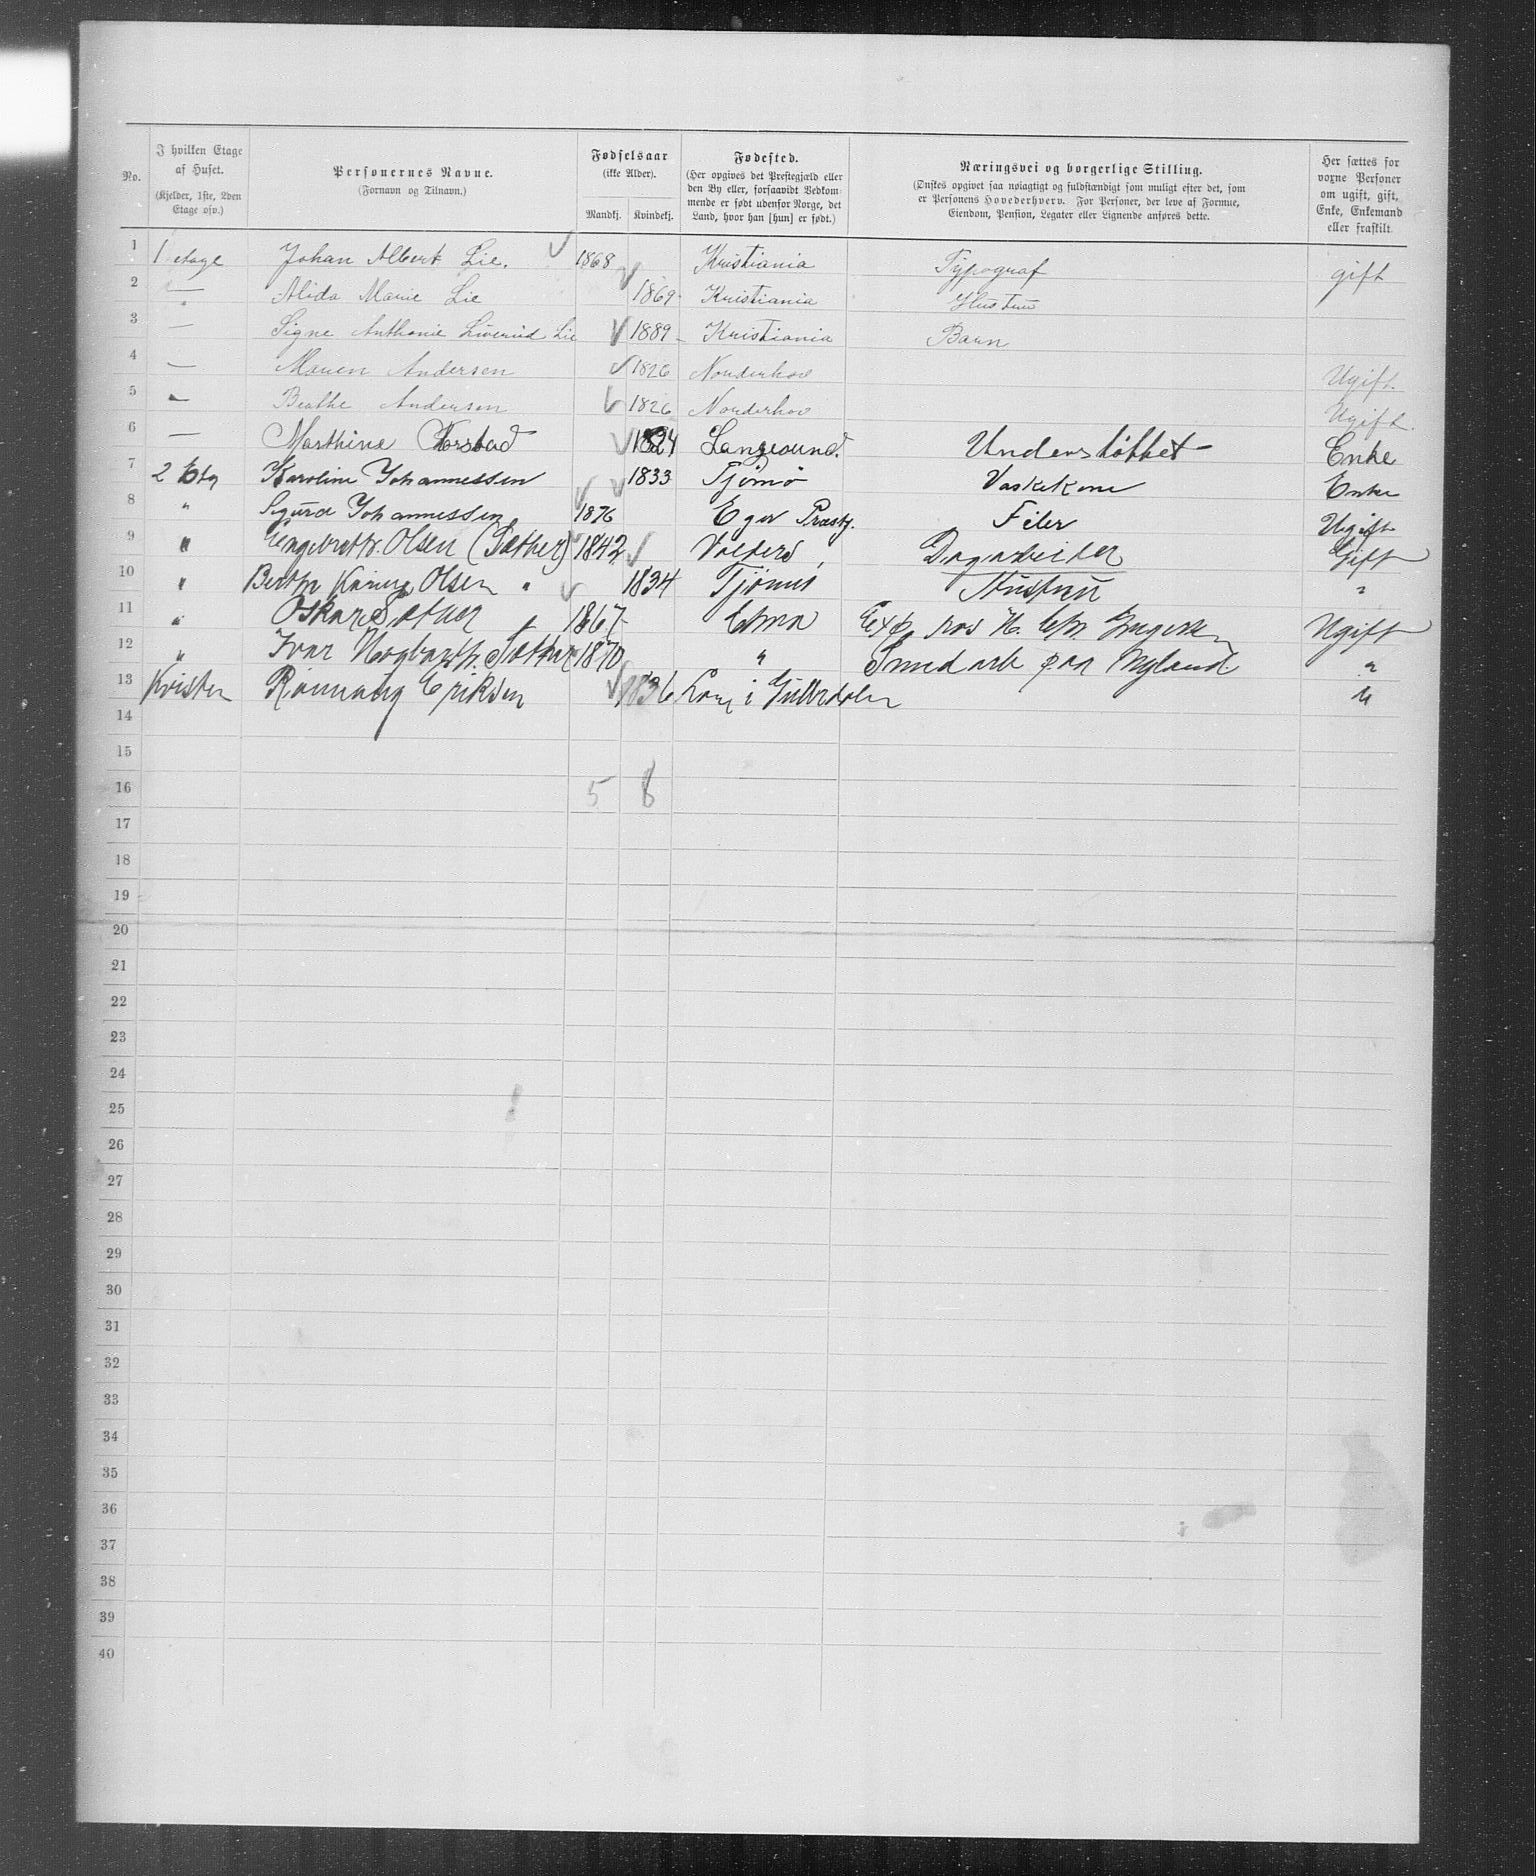 No. | I hvilken Etage af Huset. (Kjelder, 1ste, 2den Etage osv.) | Personernes Navne. (Fornavn og Tilnavn.) | Fødselsaar (ikke Alder). Mandkj. | Kvindekj. | Fødested. (Her opgives det Prestegjæld eller den By eller, forsaavidt Vedkommende er født udenfor Norge, det Land, hvor han [hun] er født.) | Næringsvei og borgerlige Stilling. (Ønskes opgivet saa nøiagtigt og fuldstændigt som muligt efter det, som er Personens Hovederhverv. For Personer, der leve af Formue, Eiendom, Pension, Legater eller Lignende anføres dette. | Her sættes for voxne Personer om ugift, gift, Enke, Enkemand eller fraskilt.
1 | 1 etage | Johan Albert Lie. | 1868 | | Kristiania | Typograf | gift
2 | — " | Alida Marie Lie | | 1869 | Kristiania | Hustru
3 | — | Signe Anthonie Liverud Lie | | 1889 | Kristiania | Barn
4 | — | Maren Andersen | | 1826 | Norderhov | | Ugift
5 | — | Beathe Andersen | | 1826 | Norderhov | | Ugift.
6 | — | Marthine | | 1824 | Langesund. | Understøttet | Enke
7 | 2 Etg | Karoline Johannessen | | 1833 | Tjømø | Vaskekone | Enke
8 | " | Sigurd Johannessen | 1876 | | Eger Præstg. | Filer | Ugift
9 | " | Engebreth. Olsen (Sæther) | 1842 | | Valders, | Dagarbeider | Gift
10 | " | Berthe Karine Olsen " | | 1834 | Tjømø | Hustru | "
11 | " | Oskar Sæther " | 1867 | | Chra | Exp. hos H. Chr. | Ugift
12 | " | Ivar Hagbarth. Sæther | 1870 | | " | Smedarb paa Nyland. | "
13 | Kvisten | Rønnaug Eriksen | | 1836 | Lom i Gulbrdalen | | "
14
15
16 | | | 5 | 8
17
18
19
20
21
22
23
24
25
26
27
28
29
30
31
32
33
34
35
36
37
38
39
40